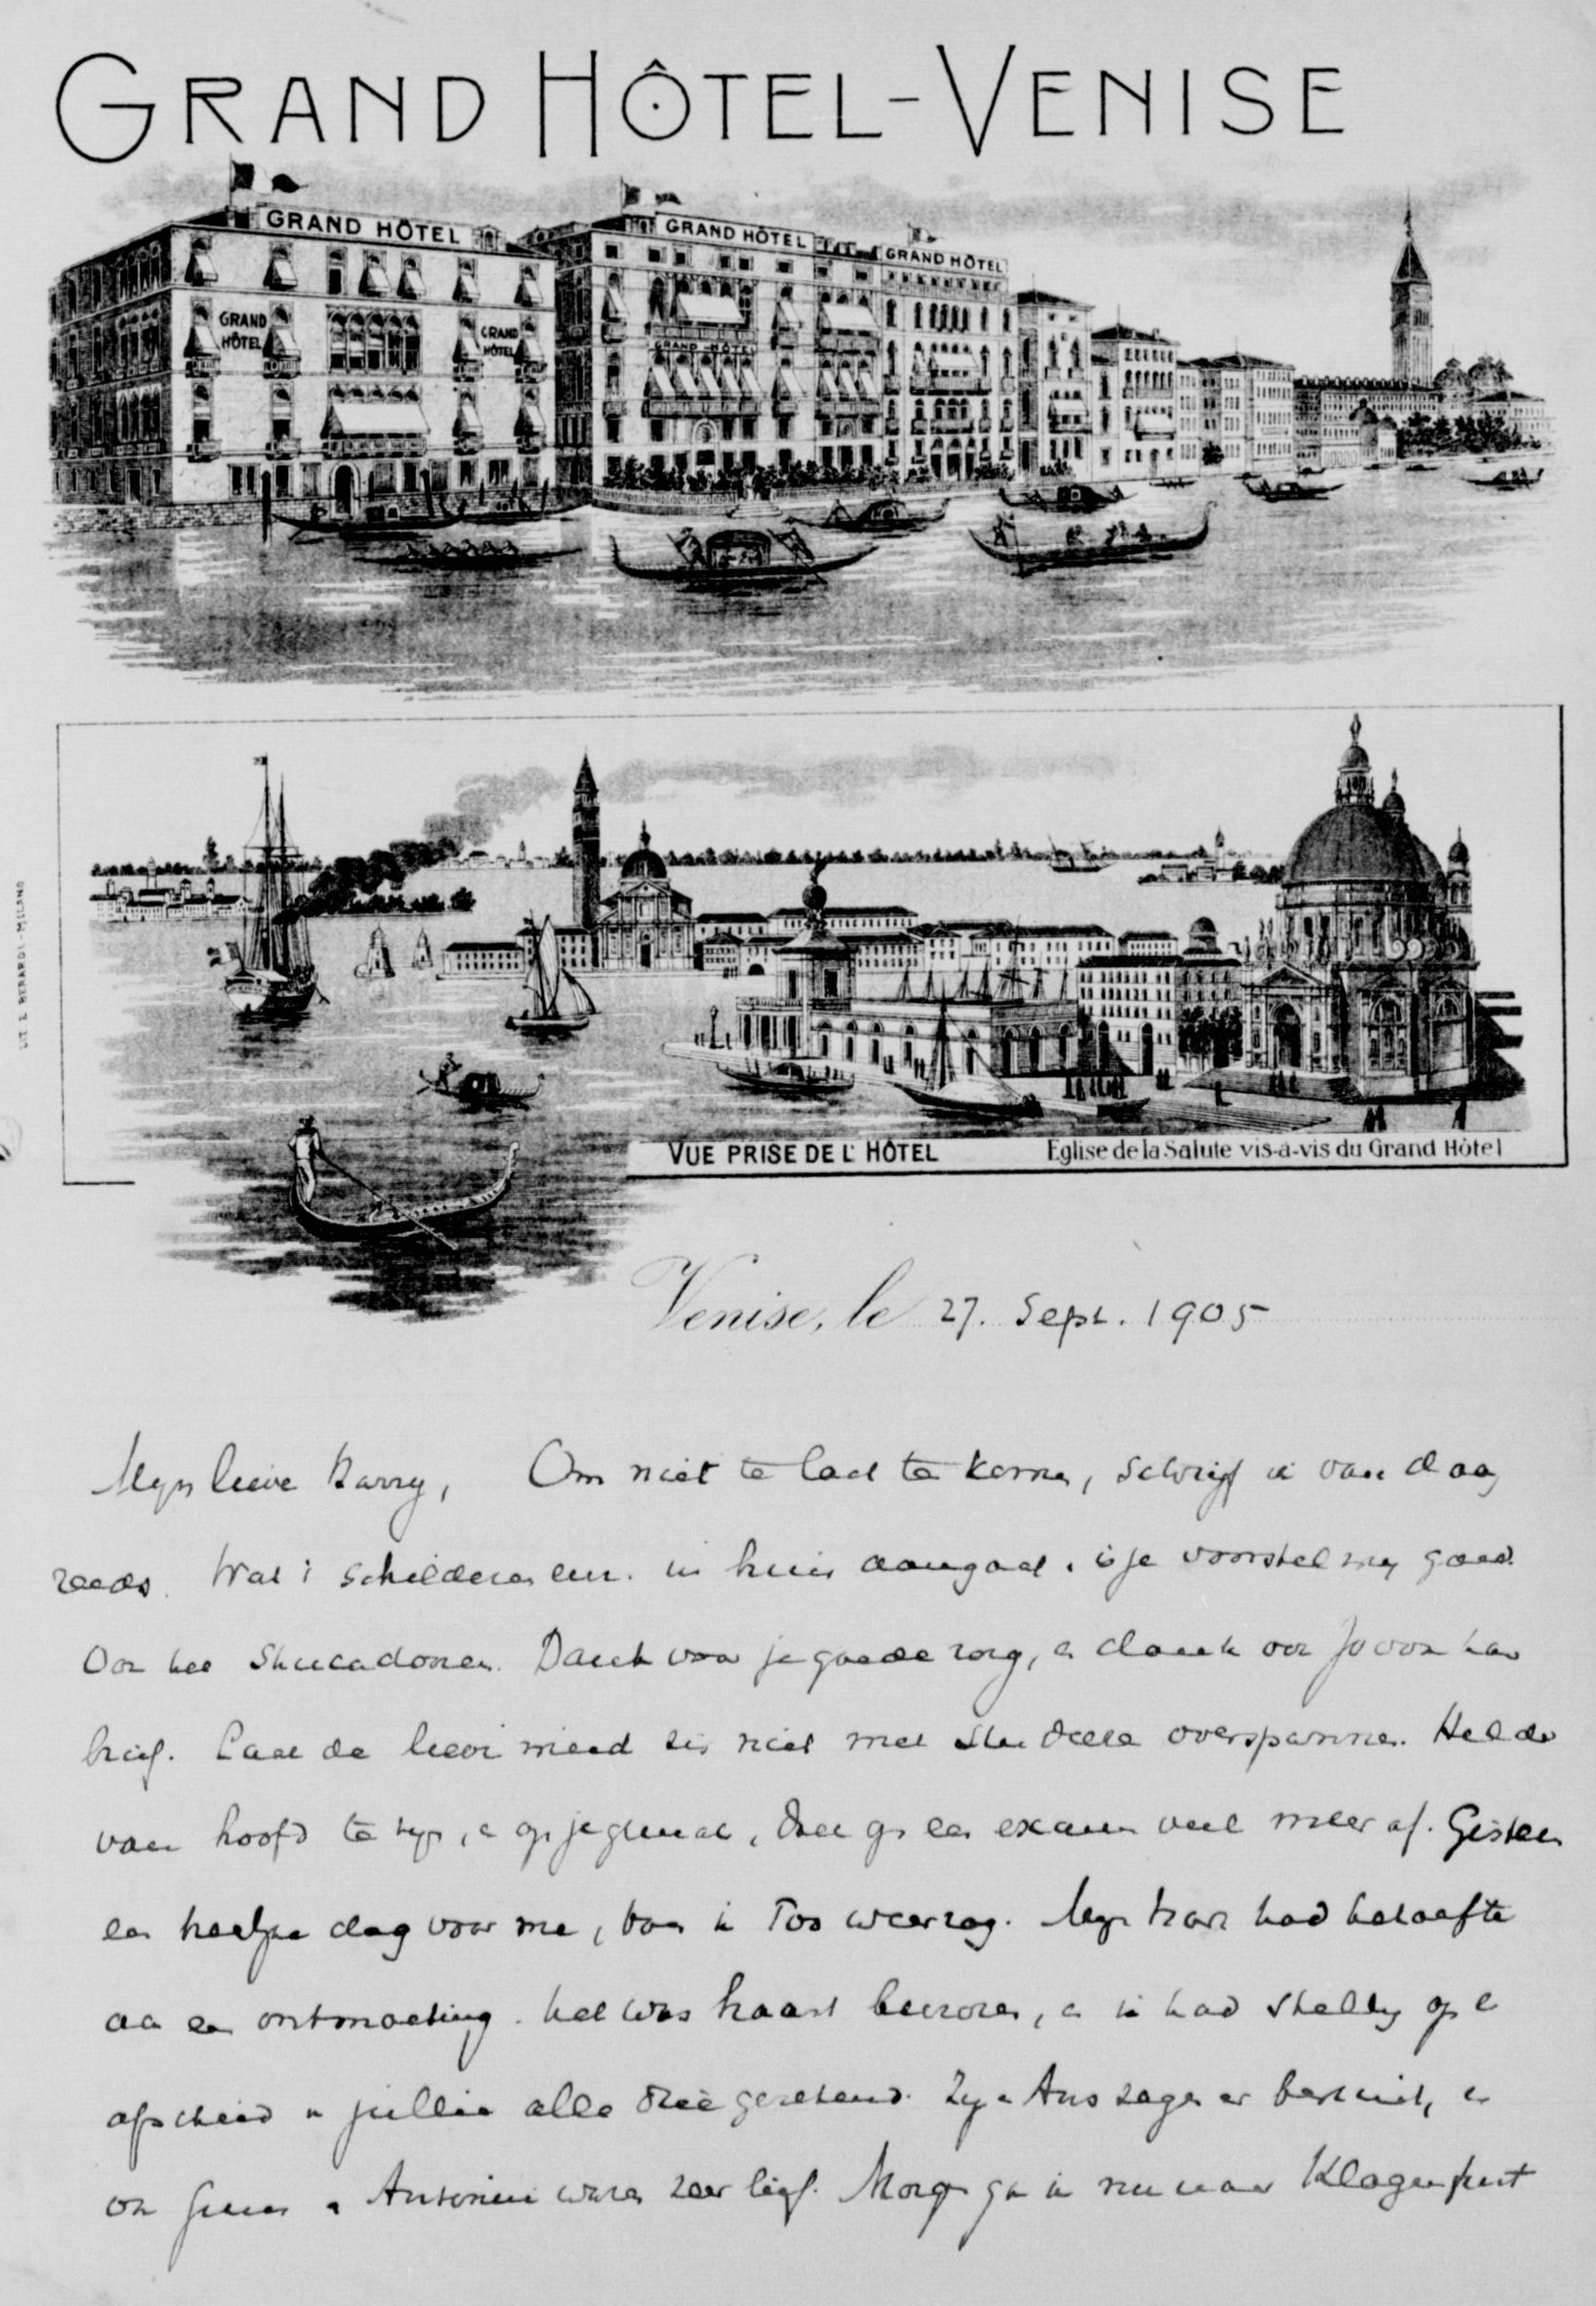 GRAND HÔTEL-VENISE
GRAND HÔTEL
GRAND HÔTEL
GRAND HÔTEL
GRAND HÔTEL
GRAND HÔTEL
GRAND-HÔTEL
LIT. L. BERARDI-MILANO
VUE PRISE DE L'HÔTEL
Eglise de la Salute vis-à-vis du Grand Hôtel
Venise, le 27. Sept. 1905
Mijn lieve Barry, Om niet te laat te komen, schrijf ik vandaag
reeds. Wat schilderen in huis aangaat, is je voorstel mij goed.
Ook het stucadoren. Dank voor je goede zorg, en dank ook Jo voor haar
brief. Laat de lieve meid zich niet met studeeren overspannen. Helder
van hoofd te zijn, en op je gemak, doet op een examen veel meer af. Gisteren
een heerlijke dag voor me, toen ik Too weerzag. Mijn hart had behoefte
aan een ontmoeting. Het was haast bevroren, en ik had stellig op een
afscheid van jullie alle drie gerekend. Zij en Ans zagen er best uit, en
ook Guus en Antonie waren zeer lief. Morgen ga ik nu naar Klagenfurt